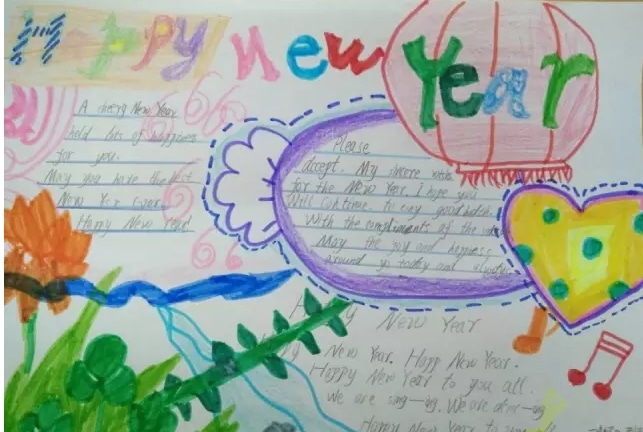 Happy New Year
A cheery New Year
hold lots of happiness
for you.
May you have the best
New Year ever
Happy New Year!
Please
accept. My sincere
for the New Year. I hope you
Will continue to enjoy good
With the compliments of the
May the joy and
around yo today and
Happy New Year
New Year. Happ New Year.
Happy New Year to you all.
We are sing-ing. We are
Happy New Year to